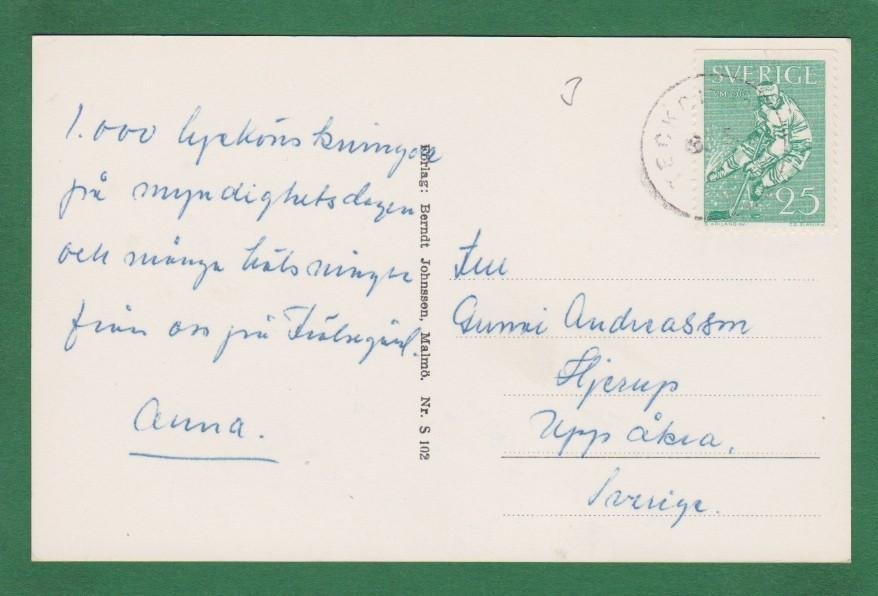 1.000 lyckönskningar
på myndighetsdagen
och många hälsningar
från oss på
Anna.
Förlag: Berndt Johnsson, Malmö. Nr. S 102
3
SVERIGE
25
Gunni Andreasson
Hjerup
Uppåkra,
Sverige.